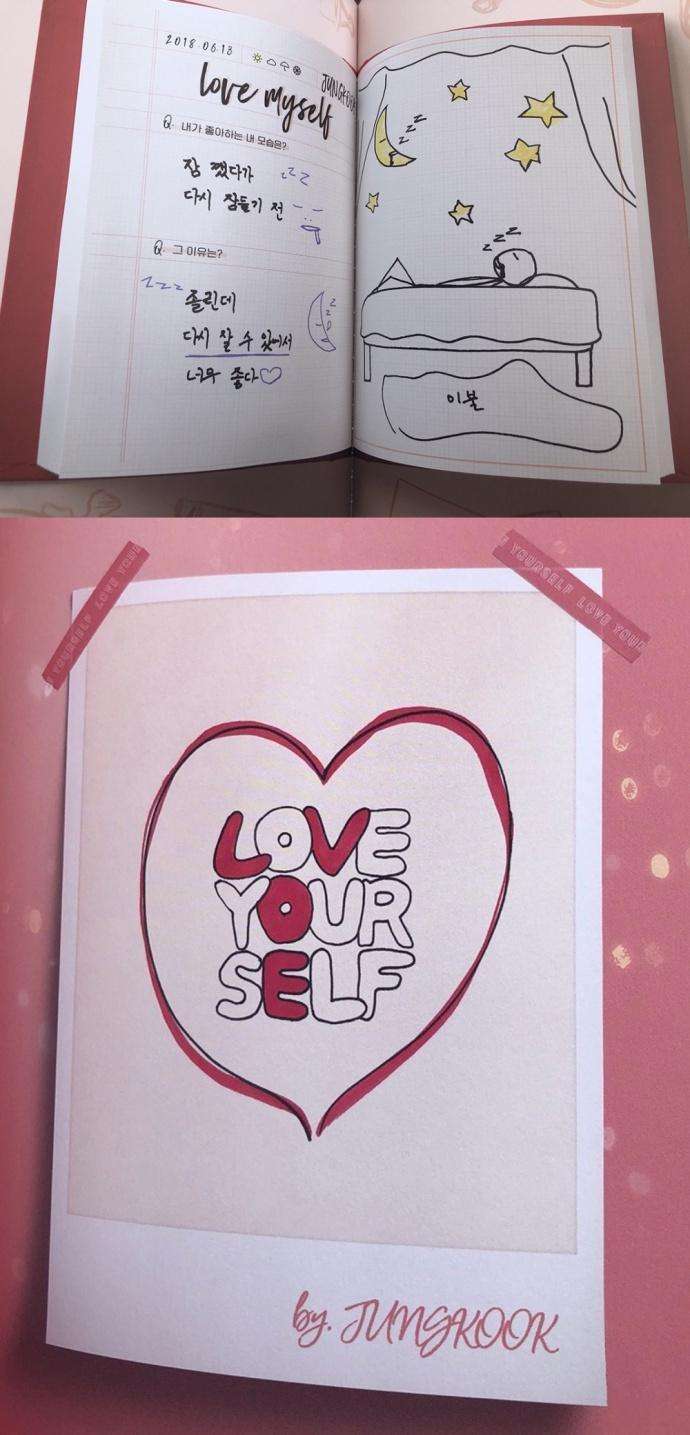 2018.06.13
JUNGKOOK
love myself
Q. 내가 좋아하는 내 모습은?
잠 깼다가 zzZ
다시 잠들기 전
Q. 그 이유는?
zzz
졸린데
다시 잘 수 있어서
너무 좋다♡
zzz
zzz
이불
YOURSELF LOVE YOUR
YOURSELF LOVE YOUR
LOVE
YOUR
SELF
by. JUNGKOOK